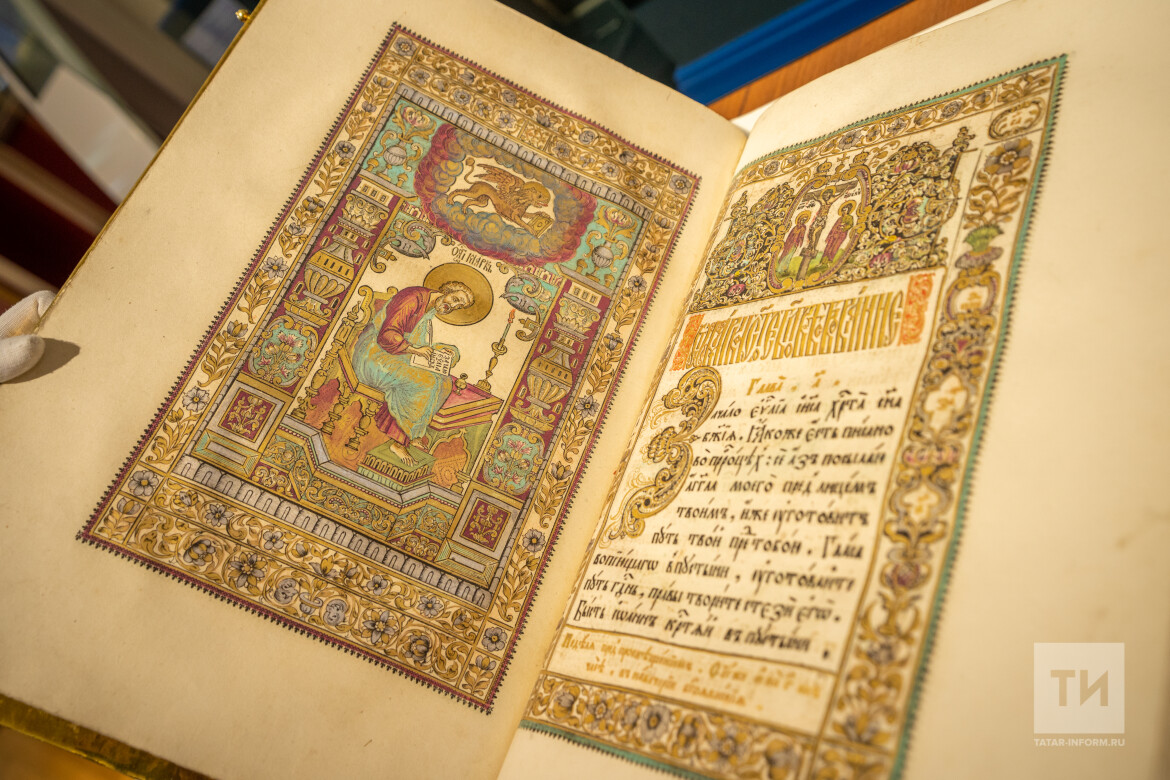 Глава . а҃.
Зачало еѵⷢ҇лїѧ і҆и҃са хрⷭ҇та сн҃а
бж҃їѧ. Ꙗ҆коже є҆сть писано
во прⷪ҇роцѣхъ : сѐ а҆зъ посылаю
а҆́гг҃ла моегѡ̀ предъ лицемъ
твоимъ, и҆́же ᲂу҆готовитъ
путь твой пред̾ тобою . Гласъ
вопїющагѡ в̾ пустыни, ᲂу҆готовайте
путь гдⷭ҇нь, правы творите стезѝ є҆гѡ̀.
Бысть і҆ѡаннъ крⷭ҇тѧй въ пустыни,
ТИ
TATAR-INFORM.RU